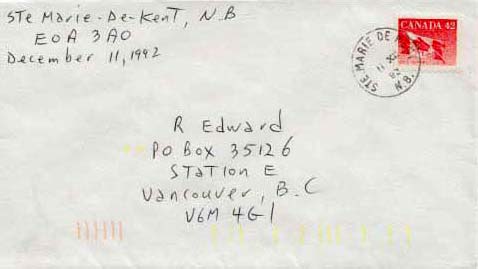 Ste Marie-De-Kent, N.B
E0A 3A0
December 11, 1992
CANADA 42
STE. MARIE DE
N.B.
R Edward
PO Box 35126
Station E
Vancouver, B.C
V6M 4G1